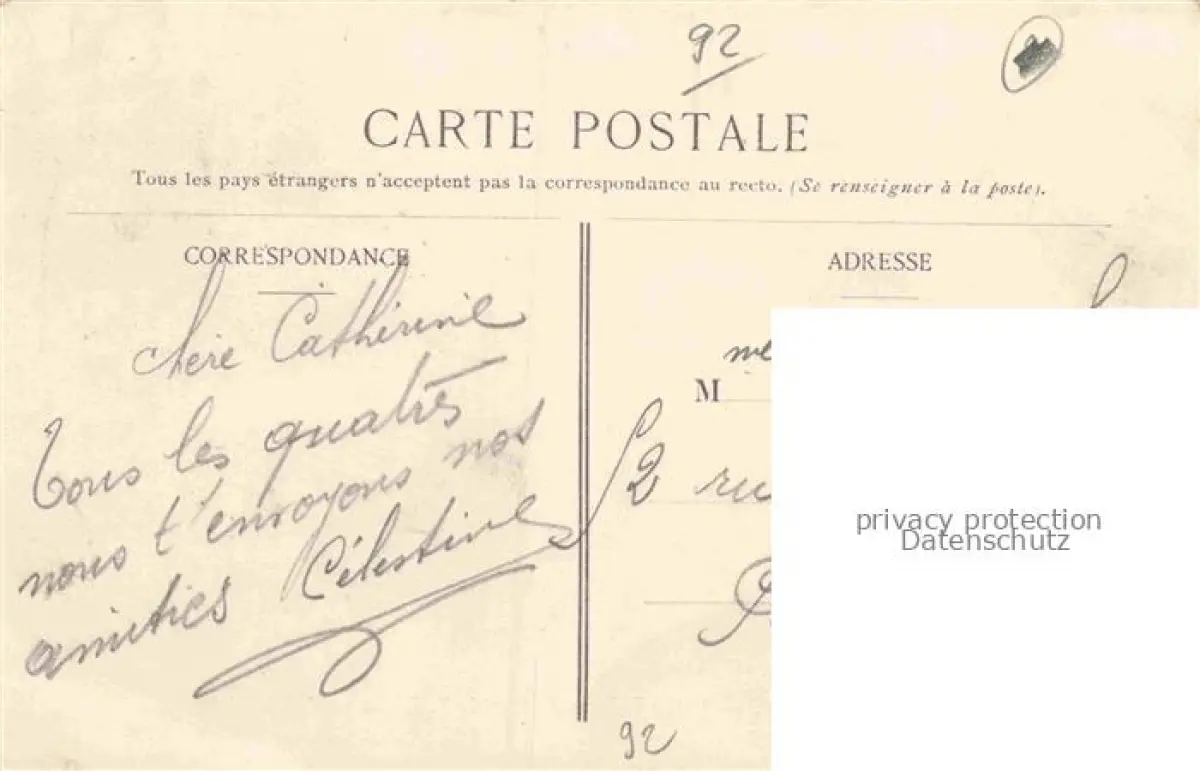 92
CARTE POSTALE
Tous les pays étrangers n'acceptent pas la correspondance au recto. (Se renseigner à la poste).
CORRESPONDANCE
chère Cathérine
Tous les quatrès
nous t'envoyons nos
amitiés Célestine
ADRESSE
M
2 ru
privacy protection
Datenschutz
92